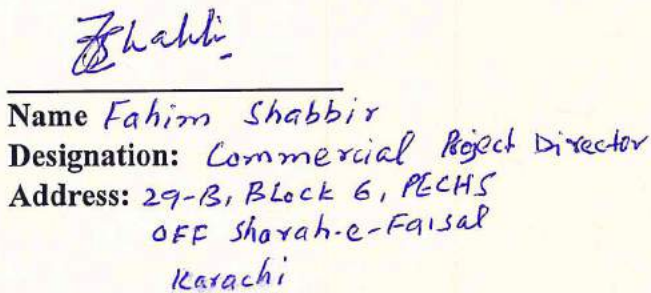 Name Fahim Shabbir
Designation: Commercial Project Director
Address: 29-B, BLOCK 6, PECHS
OFF Sharah-e-Faisal
Karachi